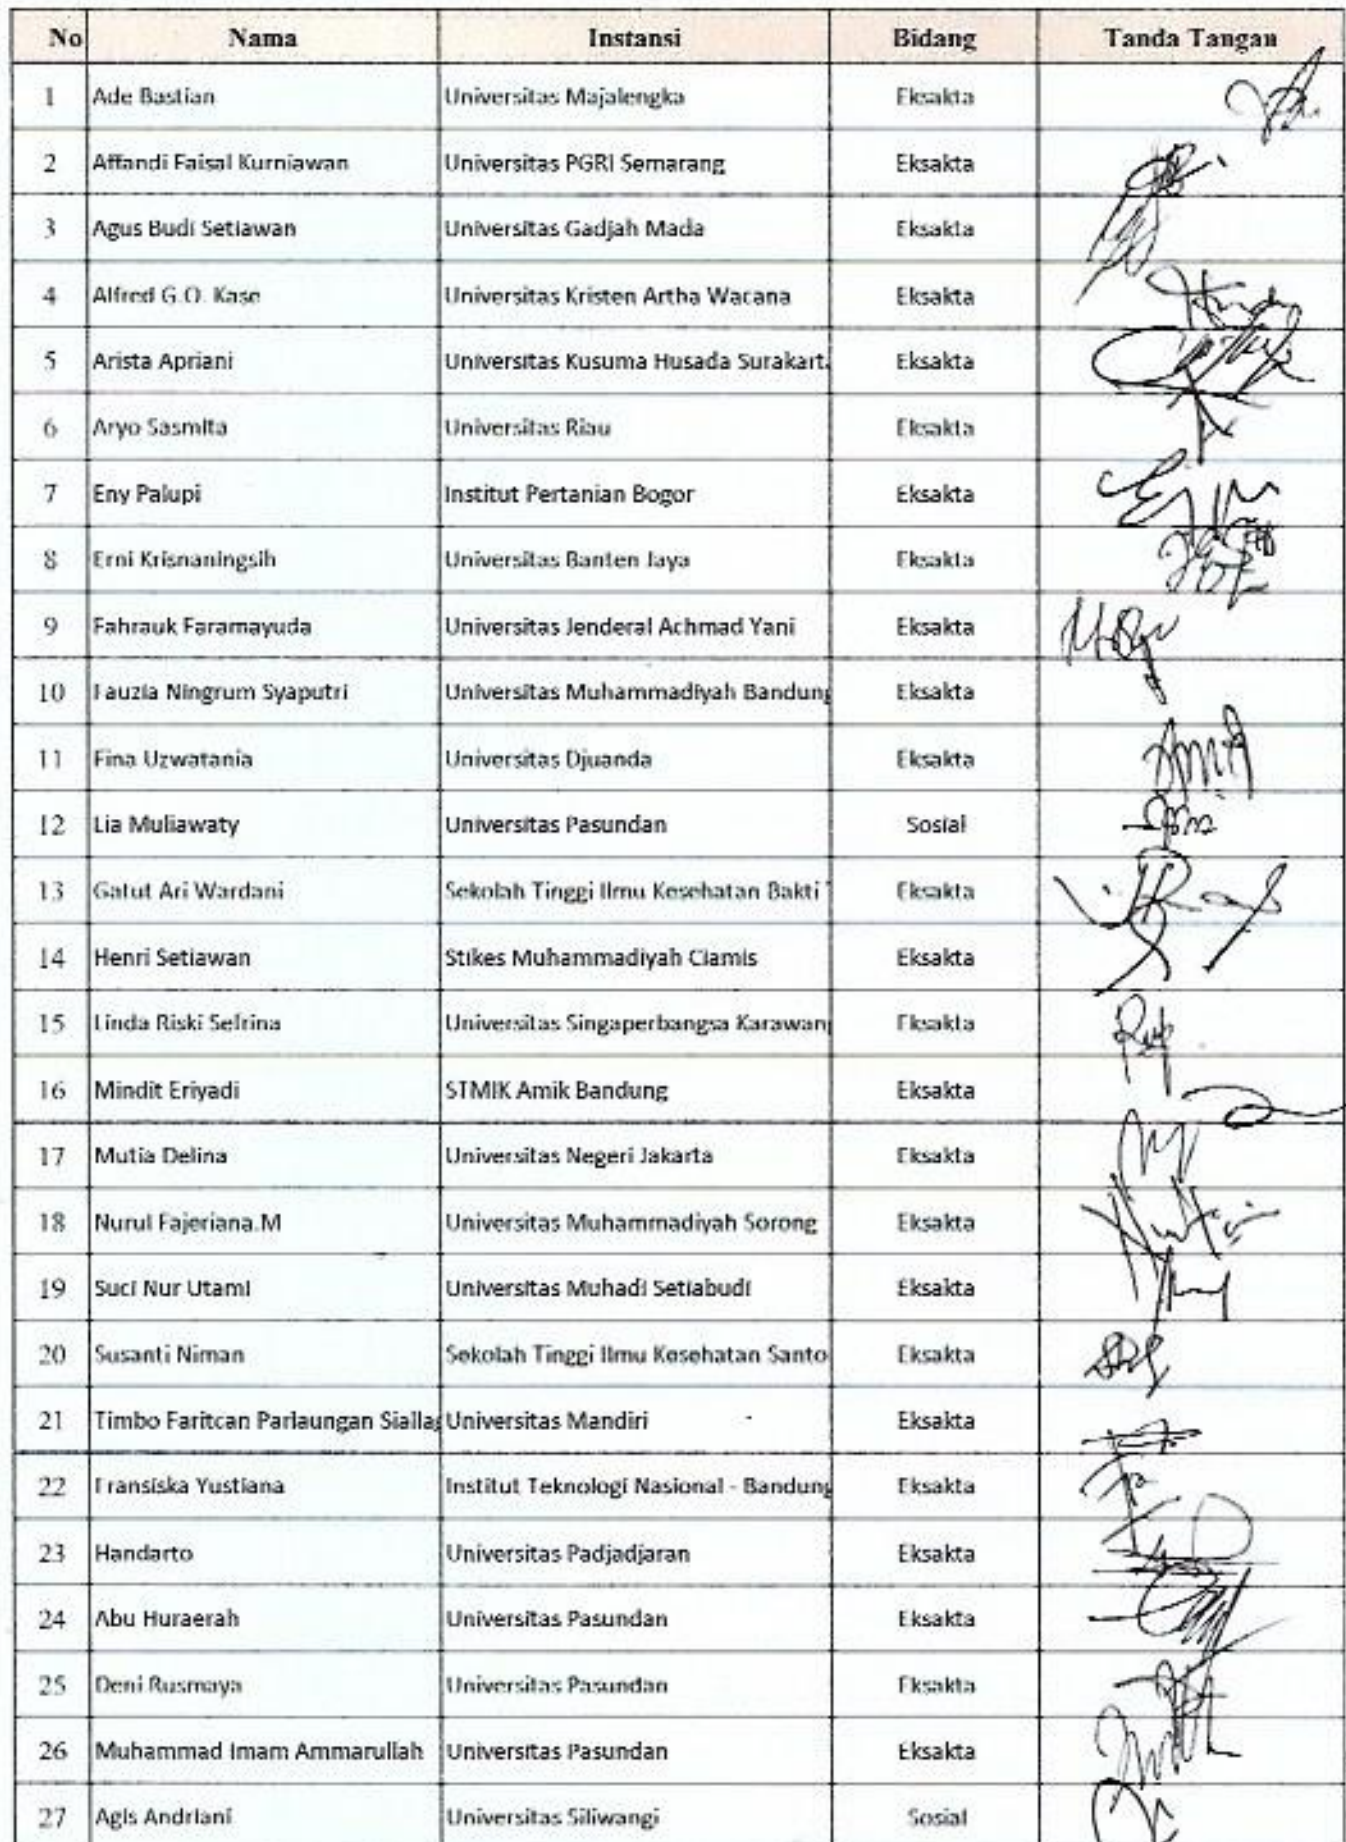 No Nama Instansi Bidang Tanda Tangan
1 Ade Bastian Universitas Majalengka Eksakta
2 Affandi Faisal Kurniawan Universitas PGRI Semarang Eksakta
3 Agus Budi Setiawan Universitas Gadjah Mada Eksakta
4 Alfred G.O. Kase Universitas Kristen Artha Wacana Eksakta
5 Arista Apriani Universitas Kusuma Husada Surakarta Eksakta
6 Aryo Sasmita Universitas Riau Eksakta
7 Eny Palupi Institut Pertanian Bogor Eksakta
8 Erni Krisnaningsih Universitas Banten Jaya Eksakta
9 Fahrauk Faramayuda Universitas Jenderal Achmad Yani Eksakta
10 Fauzia Ningrum Syaputri Universitas Muhammadiyah Bandung Eksakta
11 Fina Uzwatania Universitas Djuanda Eksakta
12 Lia Muliawaty Universitas Pasundan Sosial
13 Gatut Ari Wardani Sekolah Tinggi Ilmu Kesehatan Bakti Eksakta
14 Henri Setiawan Stikes Muhammadiyah Ciamis Eksakta
15 Linda Riski Sefrina Universitas Singaperbangsa Karawang Eksakta
16 Mindit Eriyadi STMIK Amik Bandung Eksakta
17 Mutia Delina Universitas Negeri Jakarta Eksakta
18 Nurul Fajeriana.M Universitas Muhammadiyah Sorong Eksakta
19 Suci Nur Utami Universitas Muhadi Setiabudi Eksakta
20 Susanti Niman Sekolah Tinggi Ilmu Kesehatan Santo Eksakta
21 Timbo Faritcan Parlaungan Siallag Universitas Mandiri Eksakta
22 Fransiska Yustiana Institut Teknologi Nasional - Bandung Eksakta
23 Handarto Universitas Padjadjaran Eksakta
24 Abu Huraerah Universitas Pasundan Eksakta
25 Deni Rusmaya Universitas Pasundan Eksakta
26 Muhammad Imam Ammarullah Universitas Pasundan Eksakta
27 Agis Andriani Universitas Siliwangi Sosial